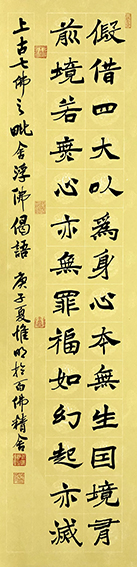 假借四大以為身心本無生因境有
前境若無心亦無罪福如幻起亦滅
上古七佛之毗舍浮佛偈語 庚子夏惟明於百佛精舍